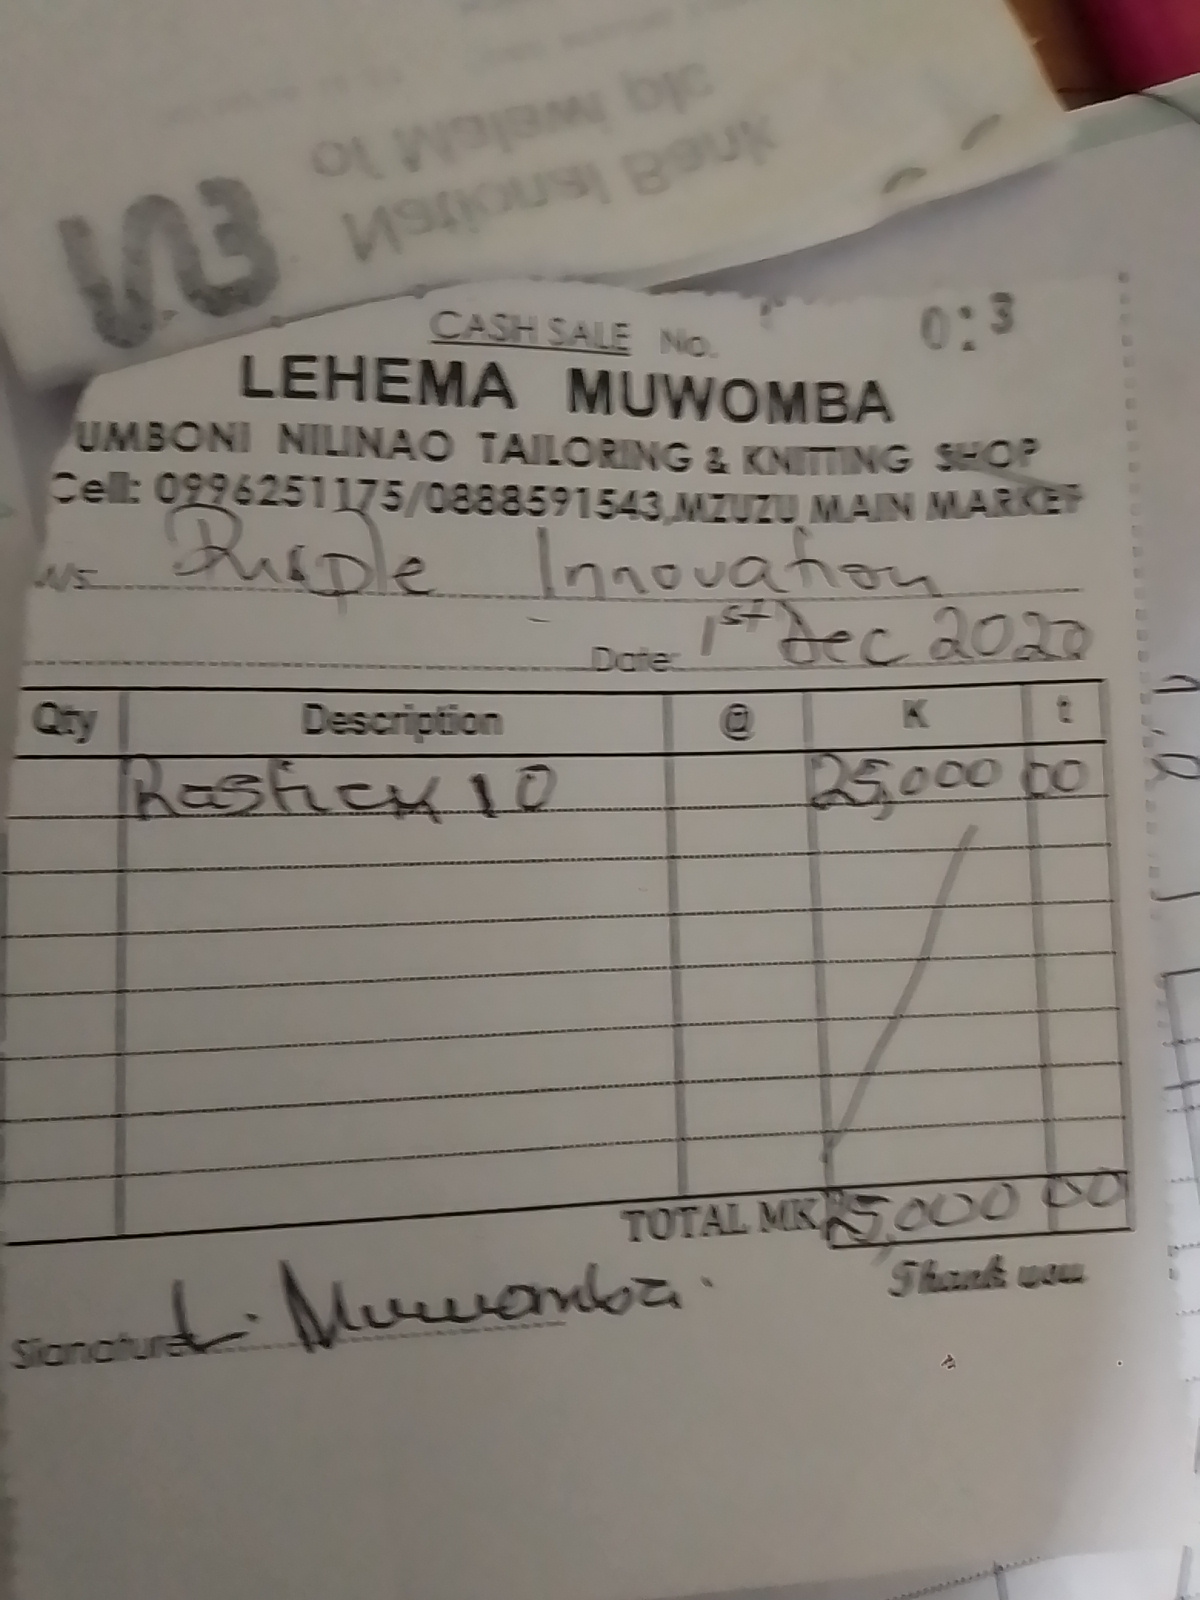 National Bank
of Malawi plc
CASH SALE No.
LEHEMA MUWOMBA
UMBONI NILINAO TAILORING & KNITTING SHOP
Cell: 0996251175/0888591543, MZUZU MAIN MARKET
M/s Purple Innovation
Date: 1st Dec 2020
Qty Description @ K t
10 25,000 00
TOTAL MK 25,000 00
Thank you
Signature L. Muwomba.